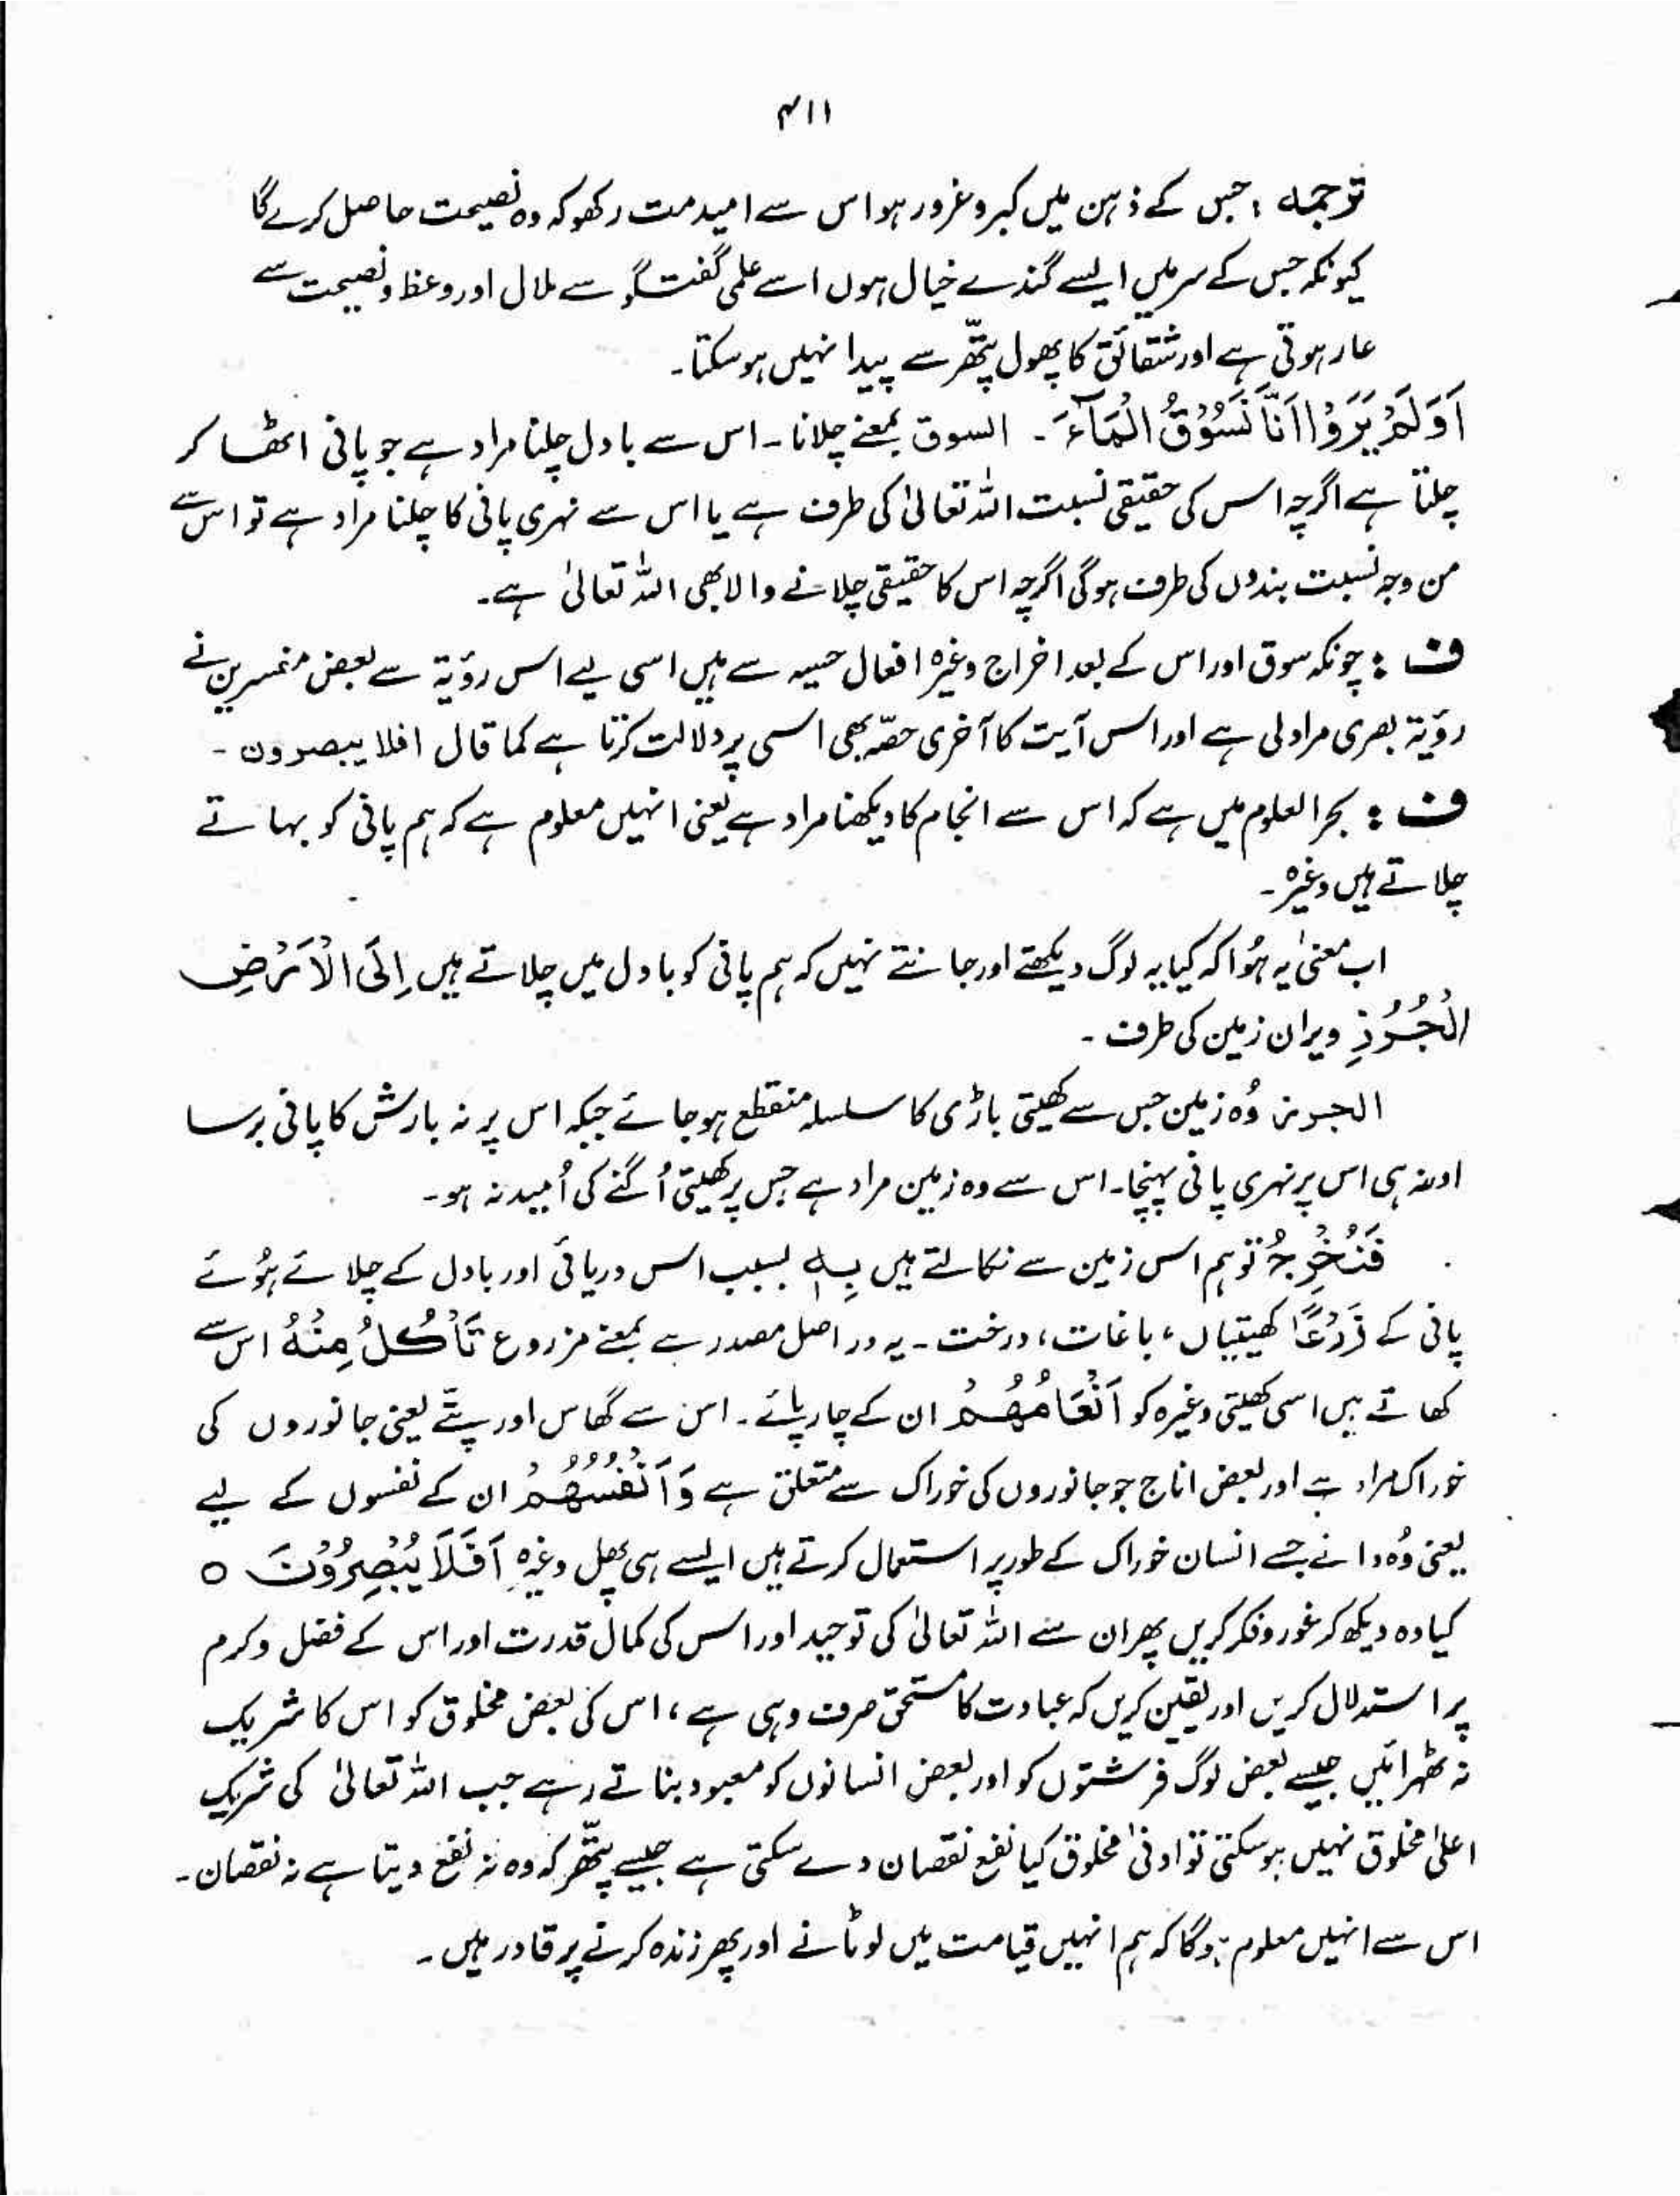 ۴۱۱
ترجمہ : جس کے ذہن میں کبر و غرور ہو اس سے امید مت رکھو کہ وہ نصیحت حاصل کرے گا
کیونکہ جس کے سر میں ایسے گندے خیال ہوں اسے علمی گفتگو سے ملال اور وعظ و نصیحت سے
عار ہوتی ہے اور شقائق کا پھول پتھّر سے پیدا نہیں ہو سکتا۔
اَوَلَمْ یَرَوْا اَنَّا نَسُوْقُ الْمَآءَ ۔ السوق بمعنے چلانا۔ اس سے بادل چلنا مراد ہے جو پانی اٹھا کر
چلتا ہے اگرچہ اس کی حقیقی نسبت اللہ تعالیٰ کی طرف ہے یا اس سے نہری پانی کا چلنا مراد ہے تو اس سے
من وجہ نسبت بندوں کی طرف ہوگی اگرچہ اس کا حقیقی چلانے والا بھی اللہ تعالیٰ ہے۔
ف : چونکہ سوق اور اس کے بعد اخراج وغیرہ افعال حسیہ سے ہیں اسی لیے اس رؤیۃ سے بعض مفسرین نے
رؤیۃ بصری مراد لی ہے اور اس آیت کا آخری حصّہ بھی اسی پر دلالت کرتا ہے کما قال افلا یبصرون ۔
ف : بحر العلوم میں ہے کہ اس سے انجام کا دیکھنا مراد ہے یعنی انہیں معلوم ہے کہ ہم پانی کو بہاتے
چلاتے ہیں وغیرہ۔
اب معنیٰ یہ ہُوا کہ کیا یہ لوگ دیکھتے اور جانتے نہیں کہ ہم پانی کو بادل میں چلاتے ہیں اِلَی الْاَرْضِ
الْجُرُزِ ویران زمین کی طرف ۔
الجرز وُہ زمین جس سے کھیتی باڑی کا سلسلہ منقطع ہو جائے جبکہ اس پر نہ بارش کا پانی برسا
اور نہ ہی اس پر نہری پانی پہنچا۔ اس سے وہ زمین مراد ہے جس پر کھیتی اُگنے کی اُمید نہ ہو۔
فَنُخْرِجُ تو ہم اس زمین سے نکالتے ہیں بِہٖ بسبب اس دریائی اور بادل کے چلائے ہُوئے
پانی کے زَرْعًا کھیتیاں ، باغات ، درخت ۔ یہ در اصل مصدر ہے بمعنے مزروع تَاْکُلُ مِنْہُ اس سے
کھاتے ہیں اسی کھیتی وغیرہ کو اَنْعَامُھُمْ ان کے چار پائے ۔ اس سے گھاس اور پتّے یعنی جانوروں کی
خوراک مراد ہے اور بعض اناج جو جانوروں کی خوراک سے متعلق ہے وَاَنْفُسُھُمْ ان کے نفسوں کے لیے
یعنی وُہ دانے جسے انسان خوراک کے طور پر استعمال کرتے ہیں ایسے ہی پھل وغیرہ اَفَلَا یُبْصِرُوْنَ ○
کیا وہ دیکھ کر غور و فکر کریں پھر ان سے اللہ تعالیٰ کی توحید اور اس کی کمال قدرت اور اس کے فضل و کرم
پر استدلال کریں اور یقین کریں کہ عبادت کا مستحق صرف وہی ہے ، اس کی بعض مخلوق کو اس کا شریک
نہ ٹھہرائیں جیسے بعض لوگ فرشتوں کو اور بعض انسانوں کو معبود بناتے رہے جب اللہ تعالیٰ کی شریک
اعلیٰ مخلوق نہیں ہو سکتی تو ادنیٰ مخلوق کیا نفع نقصان دے سکتی ہے جیسے پتھّر کہ وہ نہ نفع دیتا ہے نہ نقصان۔
اس سے انہیں معلوم ہوگا کہ ہم انہیں قیامت میں لوٹانے اور پھر زندہ کرنے پر قادر ہیں ۔